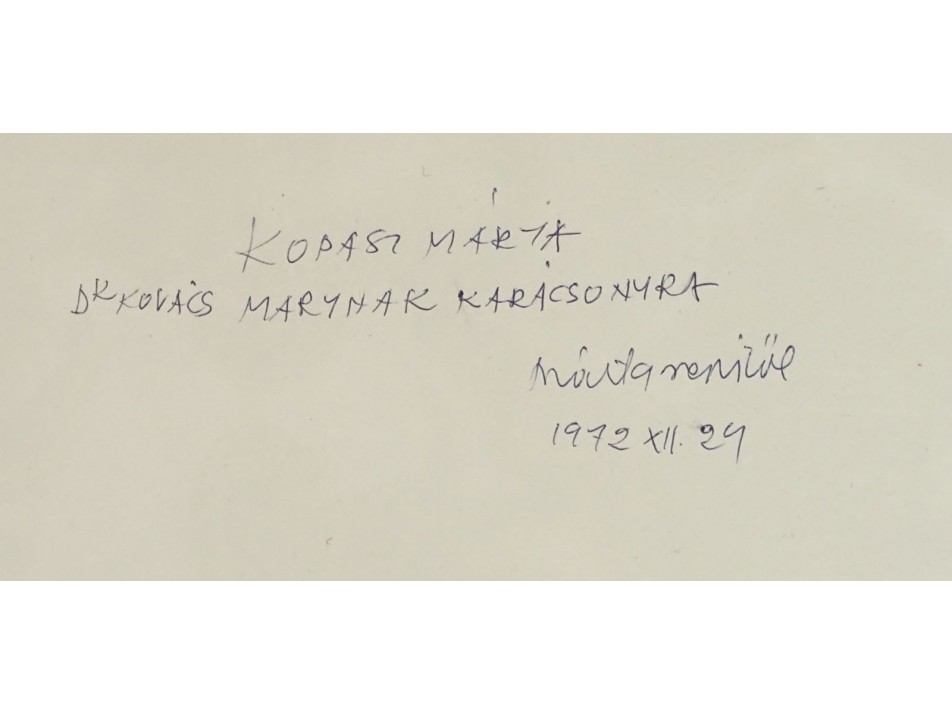 KOPASZ MÁRTA
DR KOVÁCS MARYNAK KARÁCSONYRA
Márta nenitől
1972 XII. 24